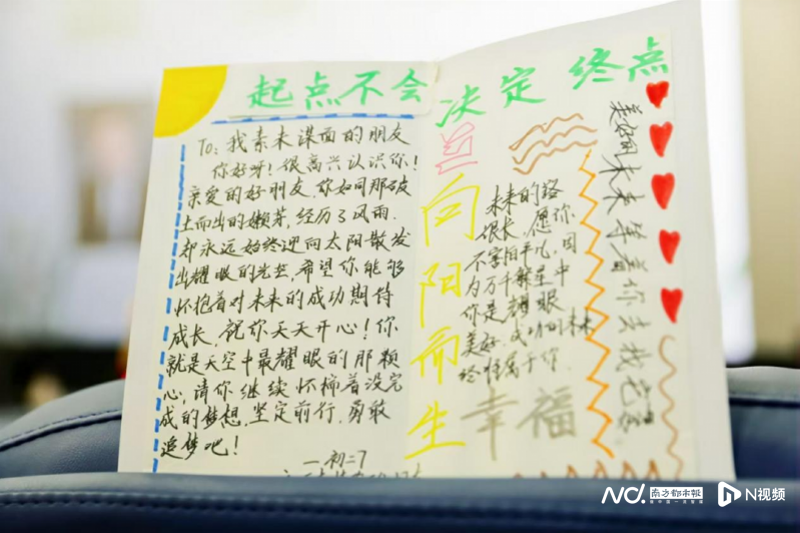 起点不会决定 终点
To：我素未谋面的朋友
你好呀！很高兴认识你！
亲爱的好朋友，你如同那破
土而出的嫩芽，经历了风雨，
却永远始终迎向太阳散发
出耀眼的光芒，希望你能够
怀抱着对未来的成功期待
成长，祝你天天开心！你
就是天空中最耀眼的那颗
心，请你继续怀揣着没完
成的梦想，坚定前行，勇敢
追梦吧！
—初二7
向阳而生
未来的路
很长，愿你
不害怕平凡，因
为万千繁星中
你是耀眼
美好，成功的未来
终将属于你。
幸福
美好的未来等着你去找它
南方都市报
N视频